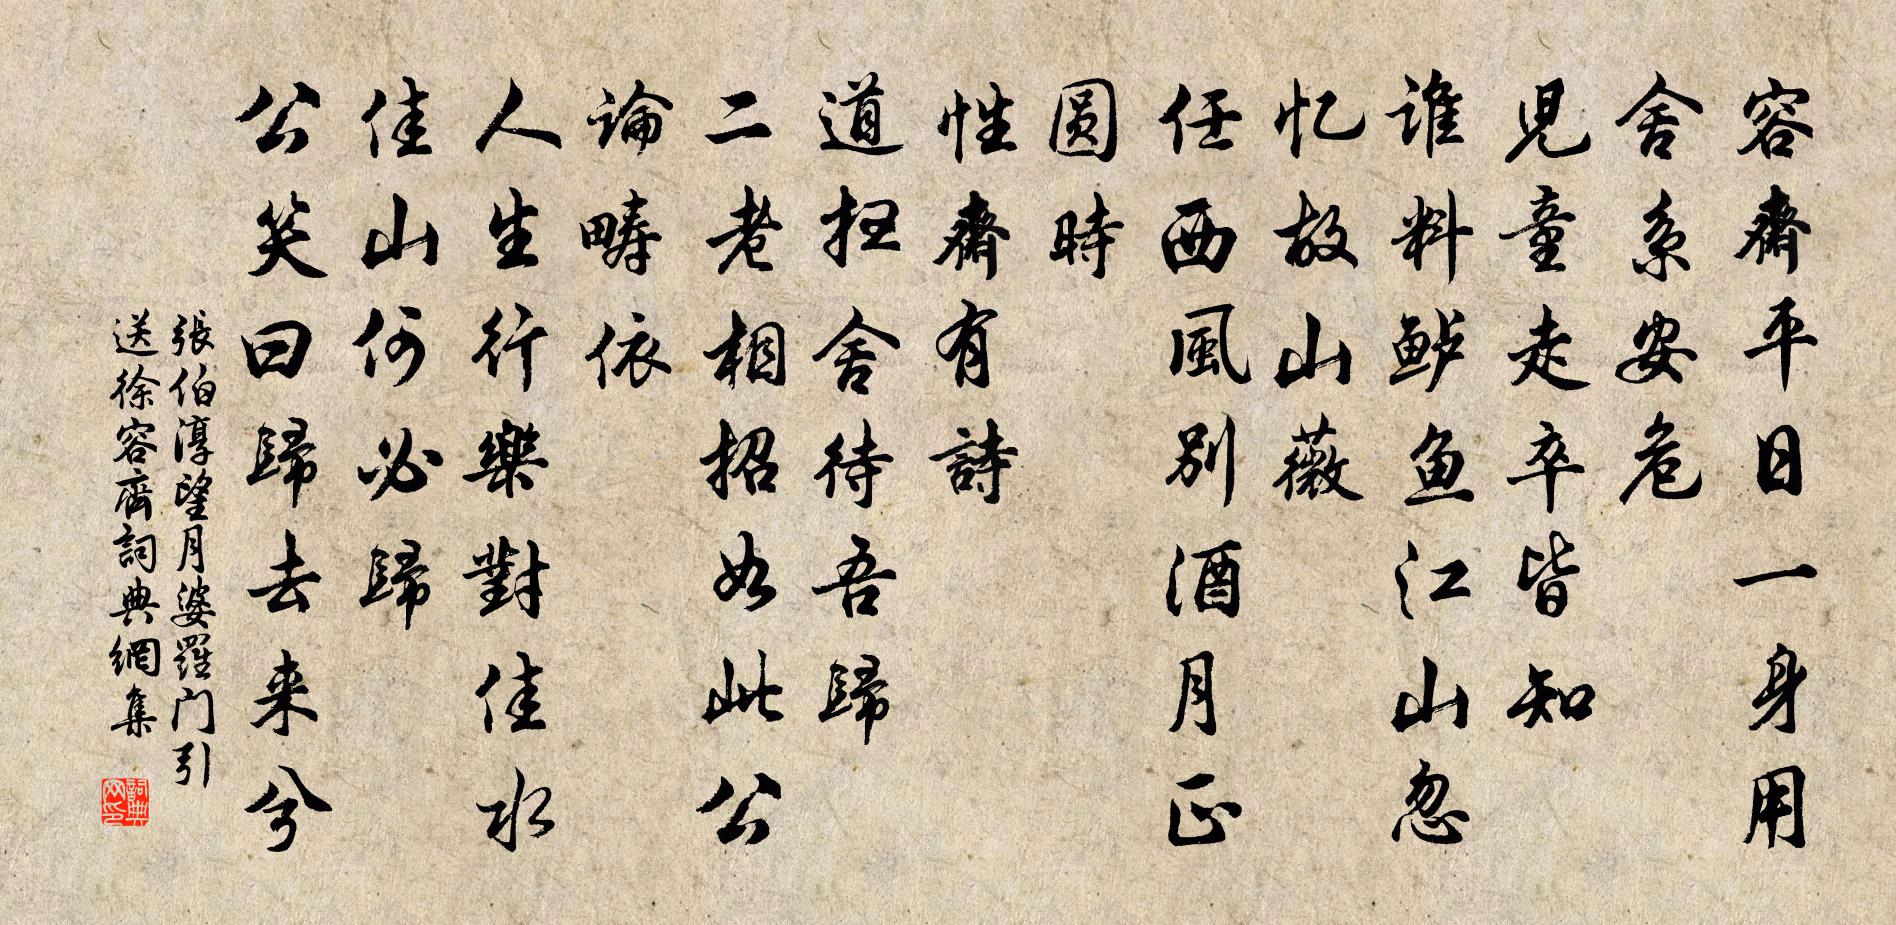 容齋平日一身用
舍系安危
児童走卒皆知
谁料鲈鱼江山忽
忆故山薇
任西風别酒月正
圆時
性齋有詩
道扫舍待吾歸
二老相招如此公
論疇依
人生行樂對佳水
佳山何必歸
公笑曰歸去来兮
張伯淳望月婆羅门引
送徐容齊詞典網集
詞典
网印